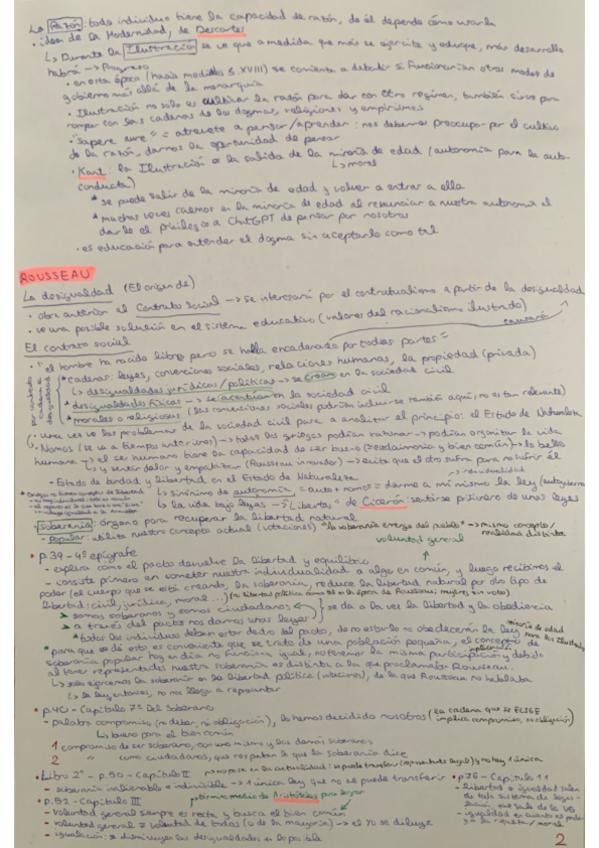 La Razón: todo individuo tiene la capacidad de razón, de él depende cómo usarla
• idea de la Modernidad, de Descartes
↳ Durante la Ilustración se ve que a medida que más se ejercite y eduque, más desarrollo
habrá → Progreso
• en esta época (hacia mediados s. XVIII) se comienza a debatir si funcionarían otros modos de
gobierno más allá de la monarquía
• Ilustración no solo es cultivar la razón para dar con otro régimen, también sirve para
romper con las cadenas de los dogmas, religiones y empirismos
• Sapere aure = atrévete a pensar/aprender: nos debemos preocupar por el cultivo
de la razón, darnos la oportunidad de pensar
• Kant: la Ilustración es la salida de la minoría de edad (autonomía para la auto-
conducta) ↳ moral
* se puede salir de la minoría de edad y volver a entrar a ella
* muchas veces caemos en la minoría de edad al renunciar a nuestra autonomía al
darle el privilegio a ChatGPT de pensar por nosotros
• es educación para entender el dogma sin aceptarlo como tal
ROUSSEAU
La desigualdad (El origen de)
• obra anterior al Contrato Social → se interesará por el contractualismo a partir de la desigualdad
• ve una posible solución en el sistema educativo (valores del racionalismo ilustrado)
El contrato social
• "el hombre ha nacido libre pero se halla encadenado por todas partes"
* cadenas: leyes, convenciones sociales, relaciones humanas, la propiedad (privada)
↳ desigualdades jurídicas/políticas → se crean en la sociedad civil
* desigualdades físicas → se acentúan en la sociedad civil
* morales o religiosas (las convenciones sociales podrían incluirse también aquí; no es tan relevante)
• una vez ve los problemas de la sociedad civil pasa a analizar el principio: el Estado de Naturaleza
humana → el ser humano tiene la capacidad de ser bueno
↳ y sentir dolor y empatizar (Rousseau innovador) → evita que el otro sufra para no sufrir él
- Estado de bondad y libertad en el Estado de Naturaleza
↳ sinónimo de autonomía = auto + nomos = darme a mí mismo la ley (autogobierno)
↳ la vida bajo leyes → "Libertas" de Cicerón: sentirse prisionero de unas leyes
• Soberanía: órgano para recuperar la libertad natural
- popular: utiliza nuestro concepto actual (votaciones) "la soberanía emerge del pueblo" → mismo concepto/
realidad distinta
voluntad general
• p.39 - 4º epígrafe
- explica cómo el pacto devuelve la libertad y equilibrio
- consiste primero en someter nuestra individualidad a algo en común, y luego recibimos el
poder (el cuerpo que se está creando, la soberanía, reduce la libertad natural por otro tipo de
libertad: civil, jurídica, moral...)
* somos soberanos y somos ciudadanos
* a través del pacto nos damos unas leyes
se da a la vez la libertad y la obediencia
* todos los individuos deben estar dentro del pacto, de no estarlo no obedecerán la ley
* para que se dé esto es conveniente que se trate de una población pequeña, el concepto de
soberanía popular hoy en día no funciona igual, no tenemos la misma participación y debido
al tener representantes nuestra soberanía es distinta a la que proclamaba Rousseau
↳ solo ejercemos la soberanía en la libertad política (votaciones), de la que Rousseau no hablaba
• p.40 - Capítulo 7º Del Soberano
- palabra compromiso (no deber, ni obligación), lo hemos decidido nosotros (la cadena que SE ELIGE
implica compromiso, no obligación)
↳ bueno para el bien común
1 compromiso de ser soberano, con uno mismo y los demás soberanos
2 " como ciudadanos, que respetan lo que la soberanía dice
• Libro 2º - p.50 - Capítulo II
- soberanía inalienable e indivisible → 1 única ley que no se puede transferir
• p.52 - Capítulo III
- voluntad general siempre es recta y busca el bien común
- voluntad general ≠ voluntad de todos (o de la mayoría) → el yo se diluye
- igualación: disminuyen las desigualdades en lo posible
• p.76 - Capítulo 11
- libertad e igualdad salen
de todo sistema de legis-
lación, que sale de la vg
2